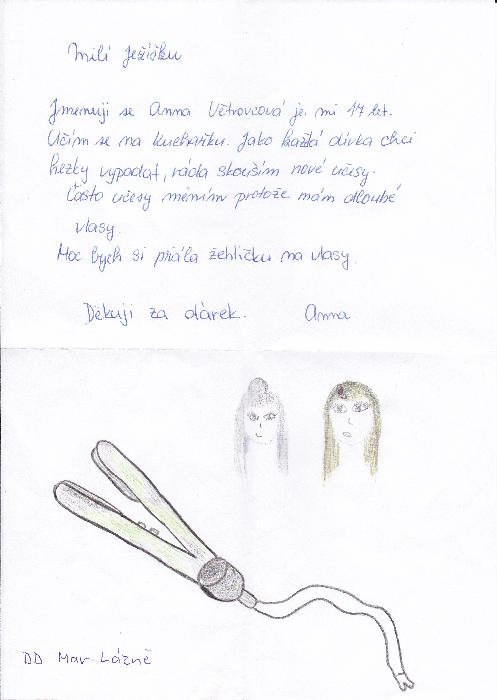 Milí Ježíšku
Jmenuji se Anna Větrovcová je mi 17 let.
Učím se na kuchařku. Jako každá dívka chci
hezky vypadat, ráda skouším nové účesy.
Často účesy měním protože mám dlouhé
vlasy.
Moc bych si přála žehličku na vlasy.
Děkuji za dárek. Anna
DD Mar. Lázně